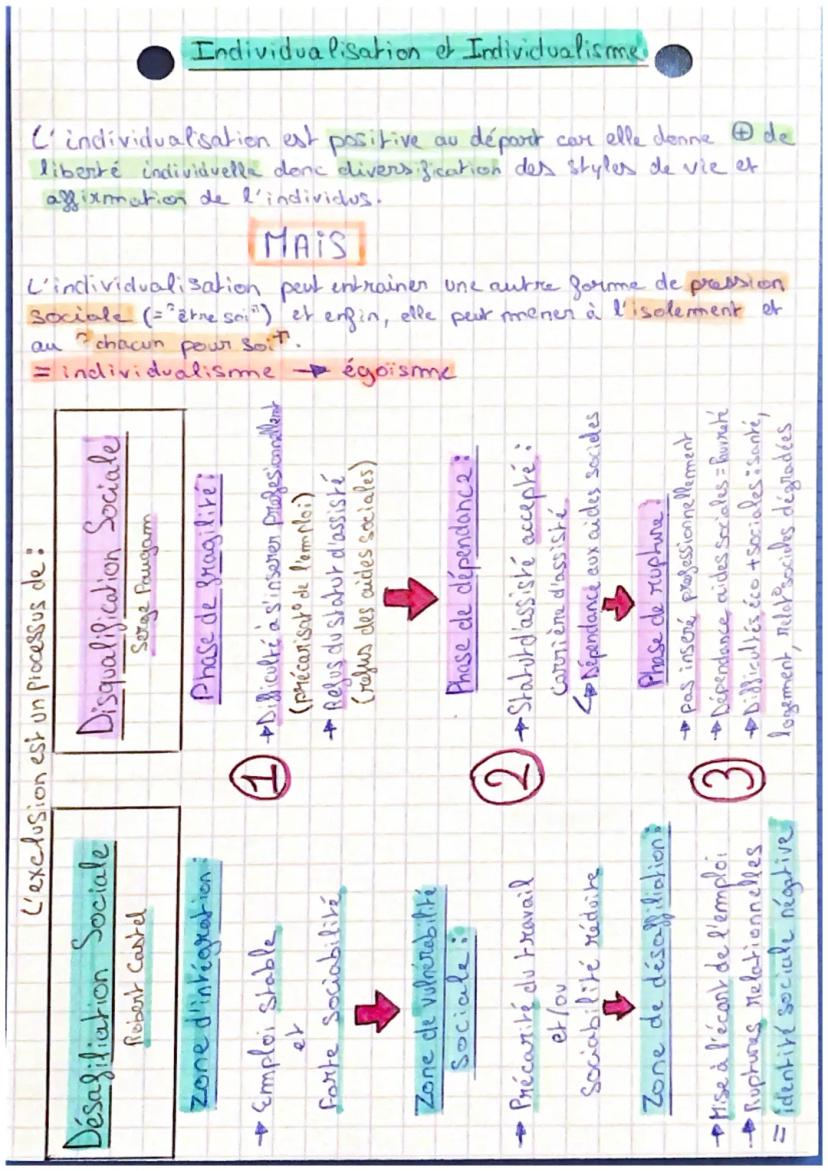 Individualisation et Individualisme
L'individualisation est positive au départ car elle donne ⊕ de
liberté individuelle donc diversification des styles de vie et
affirmation de l'individus.
MAIS
L'individualisation peut entrainer une autre forme de pression
sociale (= "être soi") et enfin, elle peut mener à l'isolement et
au "chacun pour soi".
= individualisme → égoïsme
L'exclusion est un processus de :
Désafiliation Sociale
Robert Castel
Zone d'intégration :
→ Emploi stable
et
forte sociabilité
Zone de vulnérabilité
sociale :
→ Précarité du travail
et/ou
sociabilité réduite
Zone de désaffiliation :
→ Mise à l'écart de l'emploi
→ Ruptures relationnelles
= identité sociale négative
1
2
3
Disqualification Sociale
Serge Paugam
Phase de fragilité :
→ Difficulté à s'insérer profesionnellement
(précarisat° de l'emploi)
→ Refus du statut d'assisté
(refus des aides sociales)
Phase de dépendance :
→ Statut d'assisté accepté :
carrière d'assisté
↳ Dépendance aux aides sociales
Phase de rupture :
→ pas inséré professionnellement
→ Dépendance aides sociales = Pauvreté
→ Difficultés éco + sociales : santé,
logement, relat° sociales dégradées